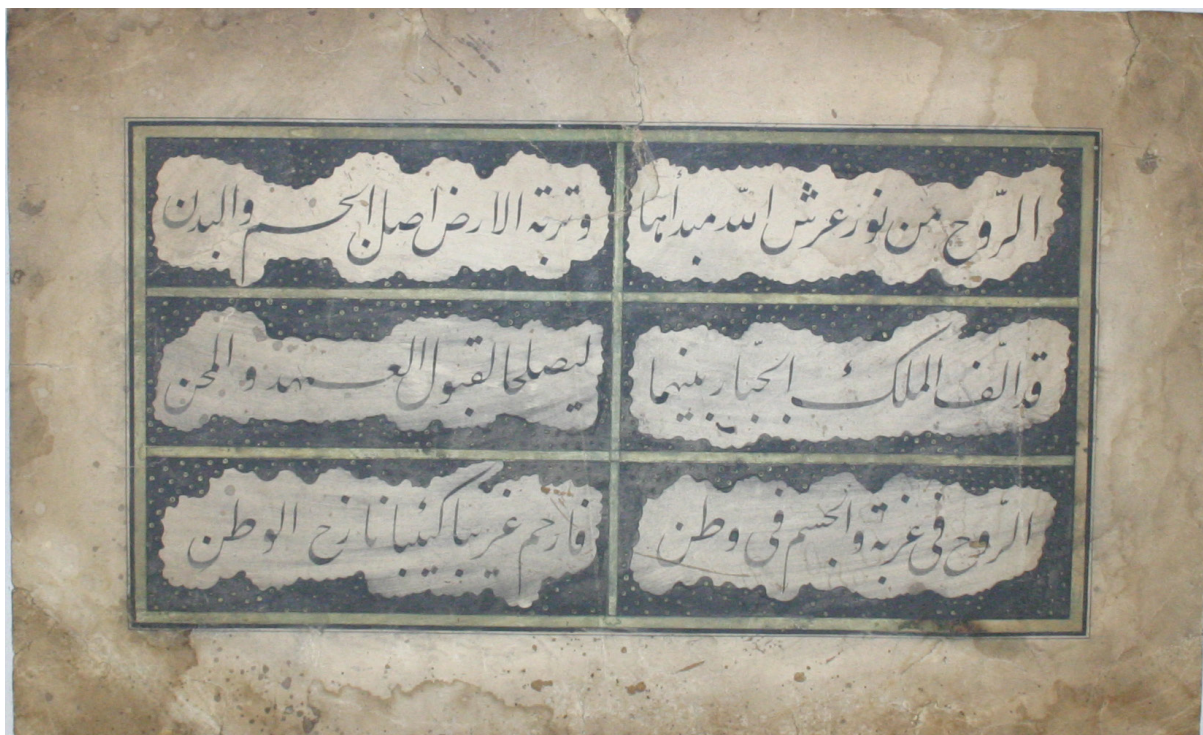 الرّوح من نور عرش الله مبدأها
وتربة الارض اصل الجسم والبدن
قد الّف الملك الجبّار بينهما
ليصلحا لقبول العهد والمحن
الرّوح فى غربة والجسم فى وطن
فارحم غريبا كئيبا نازح الوطن